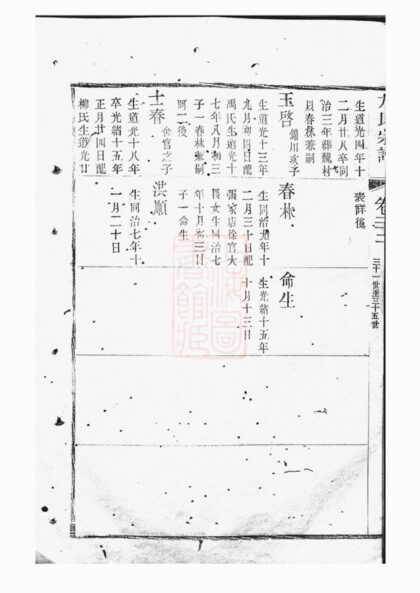 氏宗譜
卷三二
三十一世至三十五世
生道光四年十
二月廿八卒同
治三年葬魏村
以春林兼嗣
表群後
玉啓
錦川次子
生道光十三年
九月初四日配
禹氏生道光十
七年八月初三日
子一春林兼嗣
阿二後
春林
生同治九年十
二月三十日配
張家店徐官大
長女生同治七
年十月初三日
子一命生
命生
生光緒十五年
十月十三日
士春
余官之子
生道光十八年
卒光緒十五年
正月廿四日配
柳氏生道光廿
洪順
生同治七年十
一月二十日